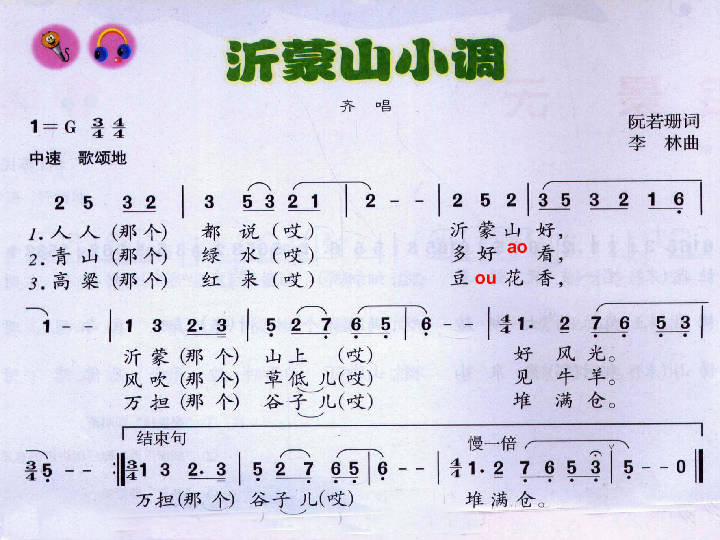 沂蒙山小调
齐 唱
1=G 3/4 4/4
阮若珊词
中速 歌颂地
李 林曲
2 5 3 2 | 3 5 3 2 1 | 2 - - | 2 5 2 | 3 5 3 2 1 6 |
1.人人(那个) 都说(哎) 沂蒙山好,
2.青山(那个) 绿水(哎) 多好 ao 看,
3.高粱(那个) 红来(哎) 豆 ou 花香,
1 - - | 1 3 2. 3 | 5 2 7 6 5 | 6 - - | 4/4 1. 2 7 6 5 3 |
沂蒙(那个) 山上(哎) 好风光。
风吹(那个) 草低儿(哎) 见牛羊。
万担(那个) 谷子儿(哎) 堆满仓。
结束句 慢一倍
3/4 5 - - :| 3/4 1 3 2. 3 | 5 2 7 6 5 | 6 - - | 4/4 1. 2 7 6 5 3 | 5 - - 0 ||
万担(那个) 谷子儿(哎) 堆满仓。